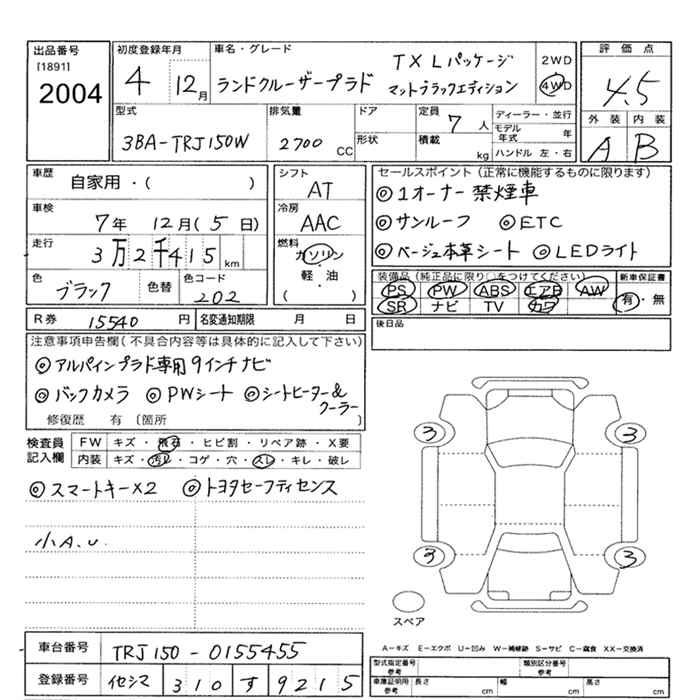 出品番号
[1891]
2004
初度登録年月
4 12月
車名・グレード
ランドクルーザープラド
TX Lパッケージ
マットブラックエディション
2WD
4WD
評価点
4.5
外装 内装
A B
型式
3BA-TRJ150W
排気量
2700 CC
ドア
形状
定員
7人
積載
kg
ディーラー・並行
モデル年式 年
ハンドル 左・右
車歴
自家用・( )
車検
7年 12月(5日)
走行
3万2千415 km
色
ブラック
色替
色コード
202
シフト
AT
冷房
AAC
燃料
ガソリン
・
軽・油
( )
セールスポイント(正常に機能するものに限ります)
◎1オーナー禁煙車
◎サンルーフ ◎ETC
◎ベージュ本革シート ◎LEDライト
装備品(純正品に限り○をつけてください)
PS PW ABS エアB AW
SR ナビ TV カワ
新車保証書
有・無
後日品
R券 15540円
名変通知期限 月 日
注意事項申告欄(不具合内容等は具体的に記入して下さい)
◎アルパインプラド専用9インチナビ
◎バックカメラ ◎PWシート ◎シートヒーター&クーラー
修復歴 有 〔箇所 〕
検査員記入欄
FW キズ・飛石・ヒビ割・リペア跡・X要
内装 キズ・汚れ・コゲ・穴・スレ・キレ・破レ
◎スマートキーX2 ◎トヨタセーフティセンス
小A.U.
3 3
3 3
スペア
A-キズ E-エクボ U-凹み W-補修跡 S-サビ C-腐食 XX-交換済
車台番号 TRJ150-0155455
登録番号 310 す 9215
型式指定番号 参考
類別区分番号 参考
車庫証明用 参考 長さ cm 幅 cm 高さ cm